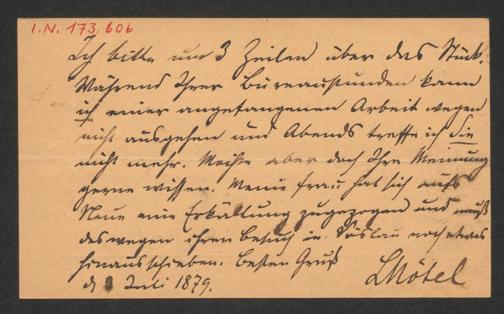 I.N. 173.606
Ich bitte um 3 Zeilen über das Stück.
Während Ihrer Büreaustunden kann
ich einer angefangenen Arbeit wegen
nicht ausgehen und Abends treffe ich Sie
nicht mehr. Möchte aber doch Ihre Meinung
gerne wissen. Meine Frau hat sich aufs
Neue eine Erkältung zugezogen und muß
deswegen ihren Besuch in Vöslau noch etwas
hinausschieben. Besten Gruß
d. Juli 1879. LNötel